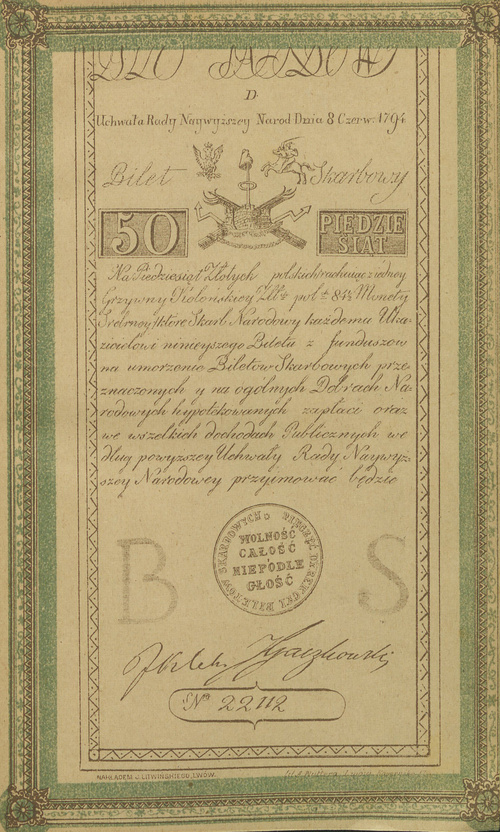 D
Uchwała Rady Naywyższey Narod Dnia 8 Czerw. 1794
Bilet Skarbowy
50 PIĘDZIE
SIĄT
Na Pięćdziesiąt Złotych polskich rachuiąc z iedney
Grzywny Kolońskiey 84½ Monety
Srebrney, które Skarb Narodowy każdemu Uka-
zicielowi ninieyszego Biletu z funduszow
na umorzenie Biletów Skarbowych prze-
znaczonych y na ogólnych Dobrach Na-
rodowych hypotekowanych zapłaci oraz
we wszelkich dochodach Publicznych we
dług powyższey Uchwały Rady Naywyż-
szey Narodowey przyimować będzie
PIECZĘĆ DYREKCYI BILETÓW SKARBOWYCH
WOLNOŚĆ
CAŁOŚĆ
I
NIEPODLE
GŁOŚĆ
B S
No 22112
NAKŁADEM J. LITWIŃSKIEGO, LWÓW.